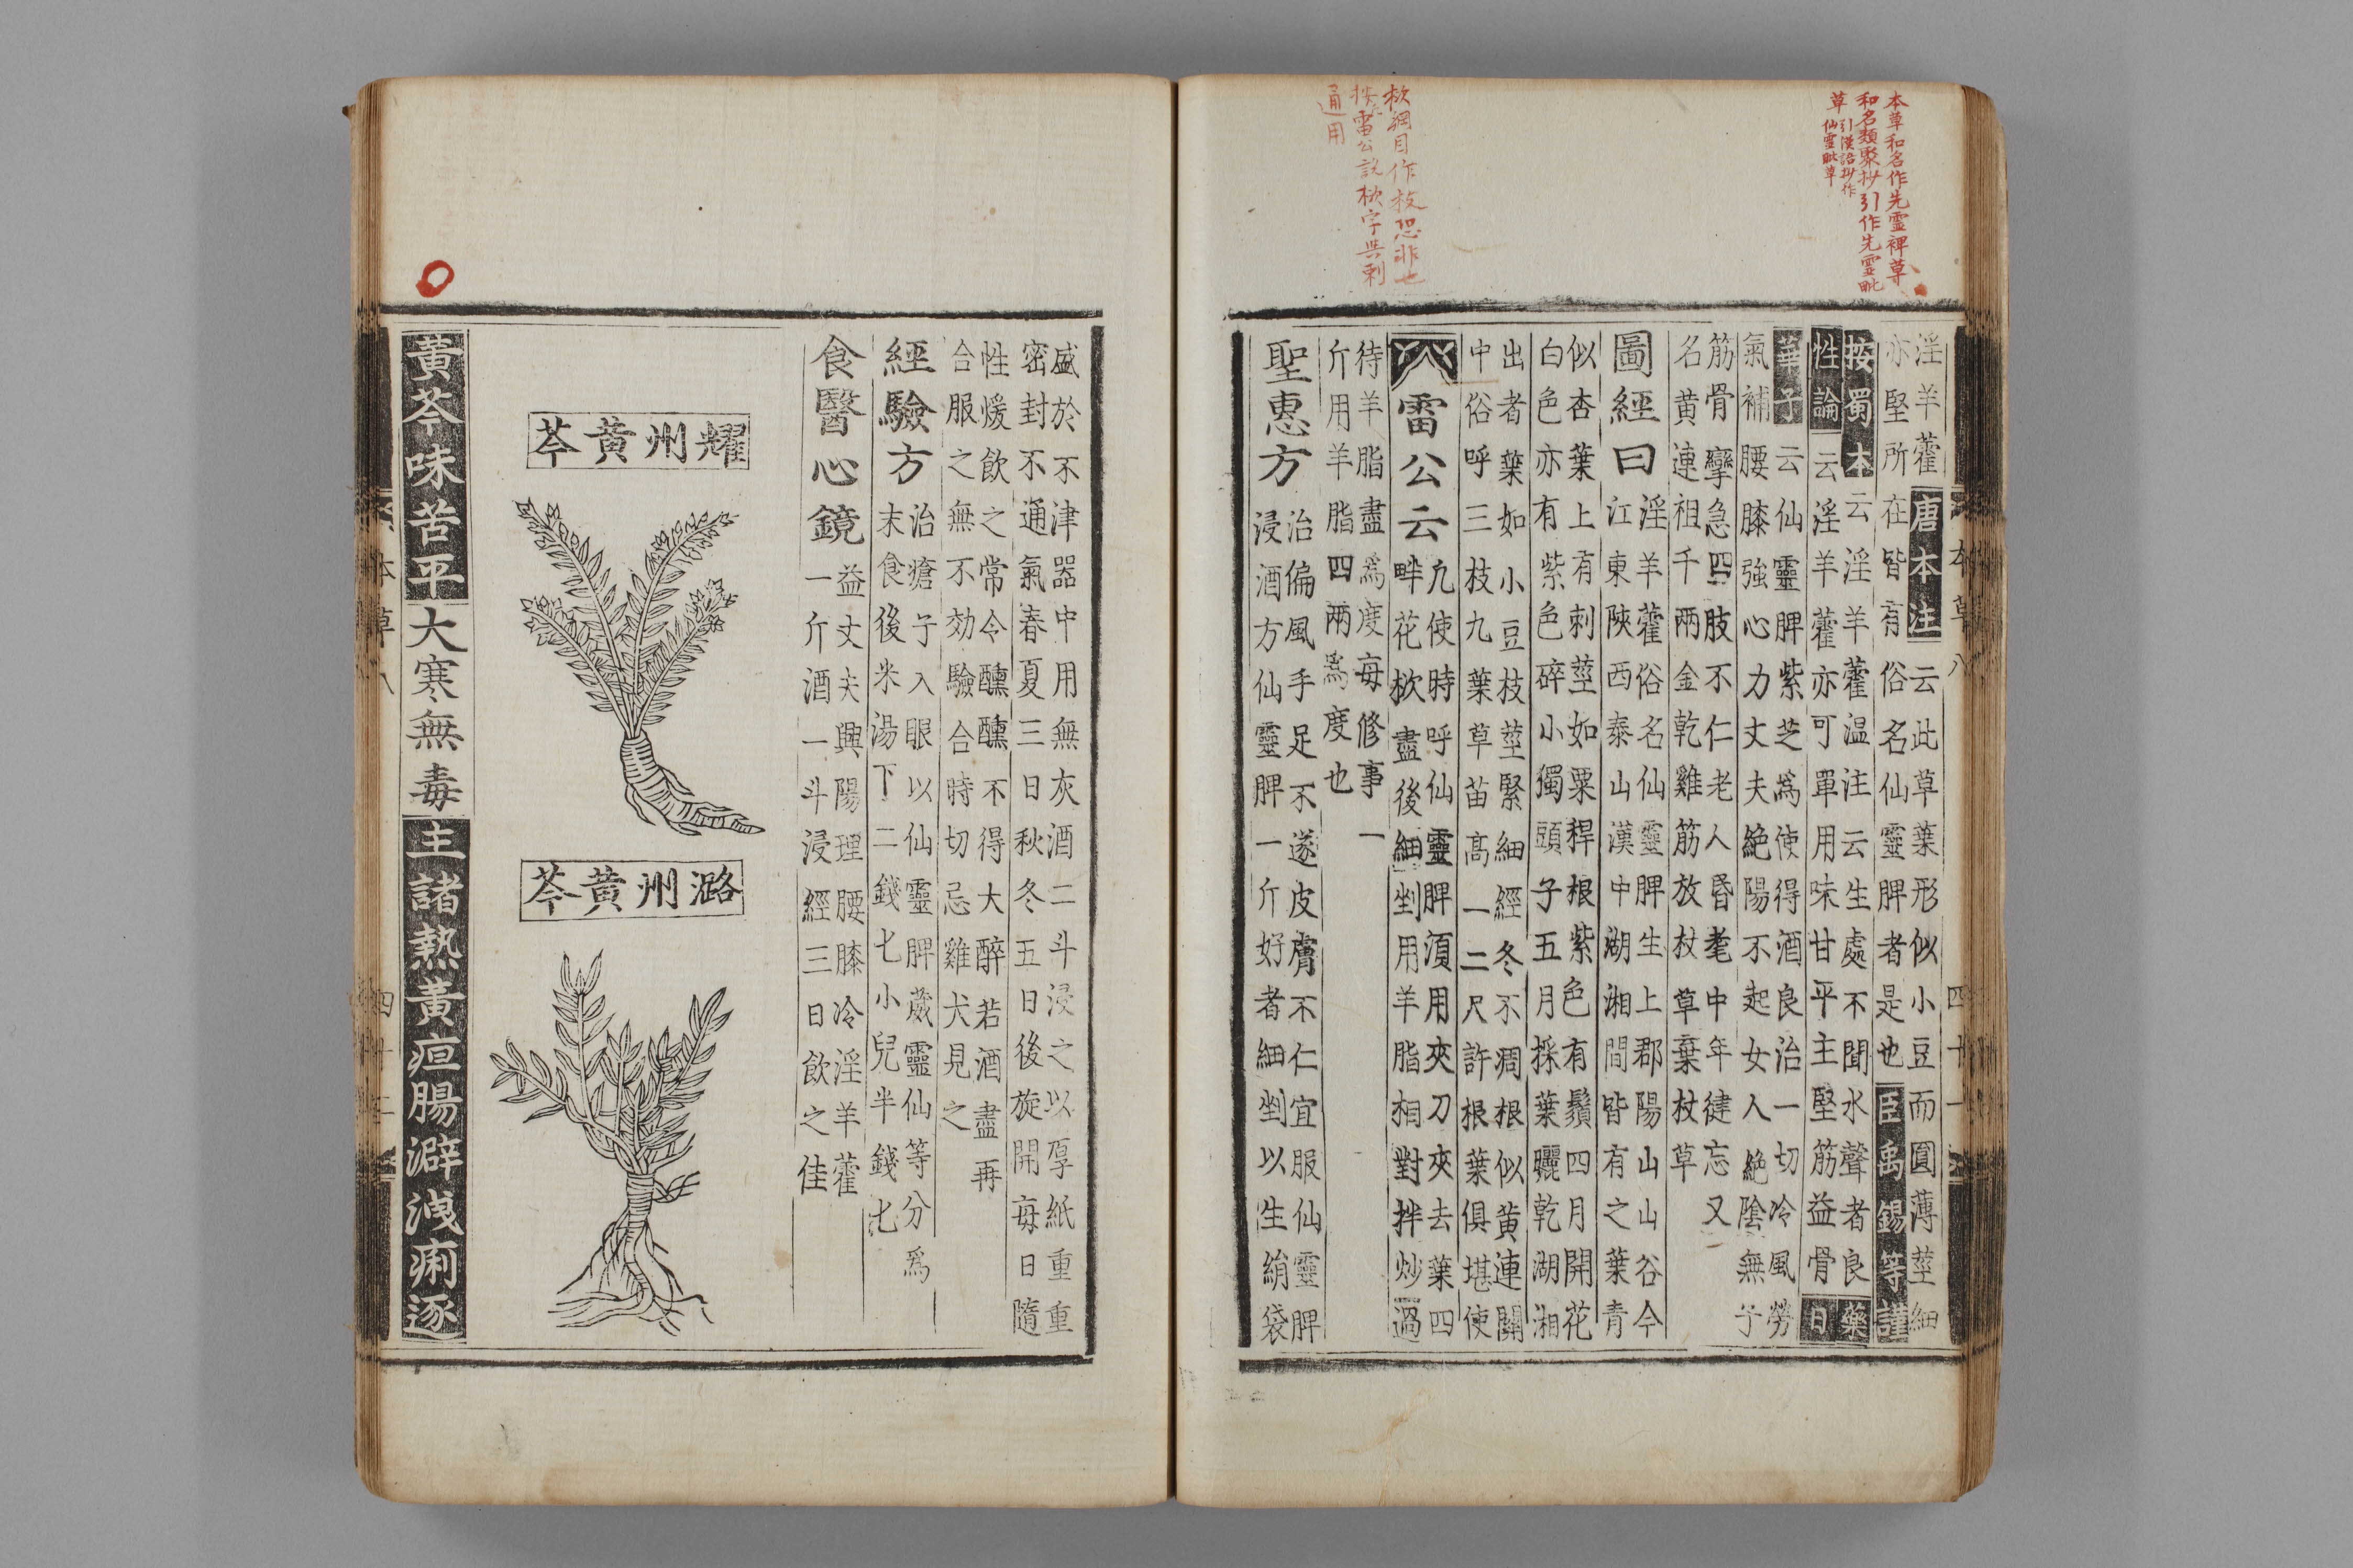 本草和名作先靈裨草
和名類聚抄引作先靈毗
草引漢語抄作
仙靈毗草
淫羊藿唐本注云此草葉形似小豆而圓薄莖細
亦堅所在皆有俗名仙靈脾者是也臣禹錫等謹
按蜀本云淫羊藿温注云生處不聞水聲者良藥
性論云淫羊藿亦可單用味甘平主堅筋益骨日
華子云仙靈脾紫芝爲使得酒良治一切冷風勞
氣補腰膝強心力丈夫絶陽不起女人絶隂無子
筋骨攣急四肢不仁老人昏耄中年徤忘又
名黄連祖千兩金乾雞筋放杖草棄杖草
圖經曰
淫羊藿俗名仙靈脾生上郡陽山山谷今
江東陝西泰山漢中湖湘間皆有之葉青
似杏葉上有刺莖如粟稈根紫色有鬚四月開花
白色亦有紫色碎小獨頭子五月採葉曬乾湖湘
出者葉如小豆枝莖緊細經冬不凋根似黄連關
中俗呼三枝九葉草苗髙一二尺許根葉俱堪使
雷公云
九使時呼仙靈脾湏用夾刀夾去葉四
畔花栨盡後細剉用羊脂相對拌炒過
待羊脂盡爲度毎修事一
斤用羊脂四兩爲度也
聖惠方
治偏風手足不遂皮膚不仁宜服仙靈脾
浸酒方仙靈脾一斤好者細剉以生絹袋
栨綱目作枝恐非也
按雷公説栨字與刺
通用
本草八
四十一
盛於不津器中用無灰酒二斗浸之以厚紙重重
密封不通氣春夏三日秋冬五日後旋開毎日隨
性煖飲之常令醺醺不得大醉若酒盡再
合服之無不効驗合時切忌雞犬見之
經驗方
治瘡子入眼以仙靈脾葳靈仙等分爲
末食後米湯下二錢匕小兒半錢匕
食醫心鏡
益丈夫興陽理腰膝冷淫羊藿
一斤酒一斗浸經三日飲之佳
耀州黄芩
潞州黄芩
黄芩味苦平大寒無毒主諸熱黄疸腸澼洩痢逐
本草八
四十二